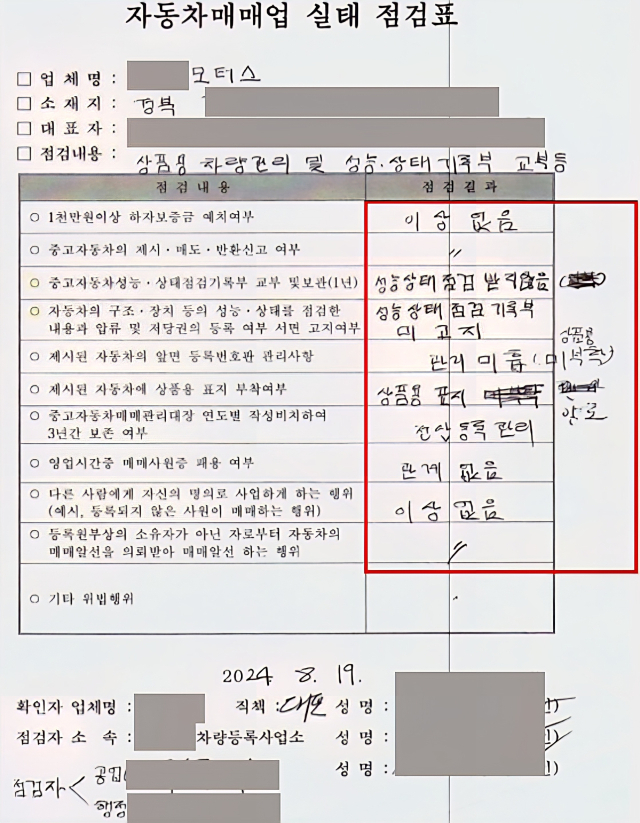 자동차매매업 실태 점검표
□ 업 체 명 : 모터스
□ 소 재 지 : 경북
□ 대 표 자 :
□ 점검내용 : 상품용 차량관리 및 성능·상태기록부 교부등
점 검 내 용 점 검 결 과
○ 1천만원이상 하자보증금 예치여부 이 상 없 음
○ 중고자동차의 제시·매도·반환신고 여부 〃
○ 중고자동차성능·상태점검기록부 교부 및보관(1년) 성능상태 점검 받지않음
○ 자동차의 구조·장치 등의 성능·상태를 점검한 성능상태 점검 기록부
내용과 압류 및 저당권의 등록 여부 서면 고지여부 미 고 지
○ 제시된 자동차의 앞면 등록번호판 관리사항 관리 미흡 (미부착)
상품용
○ 제시된 자동차에 상품용 표지 부착여부 상품용 표지
○ 중고자동차매매관리대장 연도별 작성비치하여
3년간 보존 여부 전산 등록 관리
○ 영업시간중 매매사원증 패용 여부 관계 없음
○ 다른 사람에게 자신의 명의로 사업하게 하는 행위
(예시, 등록되지 않은 사원이 매매하는 행위) 이 상 없음
○ 등록원부상의 소유자가 아닌 자로부터 자동차의
매매알선을 의뢰받아 매매알선 하는 행위 〃
○ 기타 위법행위
2024 8. 19.
확인자 업체명 : 직책 : 대표 성 명 :
점검자 소 속 : 차량등록사업소 성 명 :
성 명 :
점검자 < 공업
행정